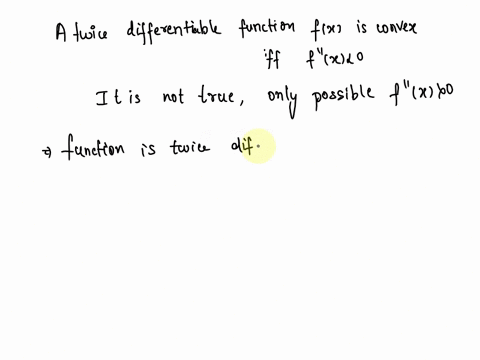 A twice differentiable function f(x) is convex
iff f"(x)<0
It is not true, only possible f"(x)>0
⇒ function is twice dif